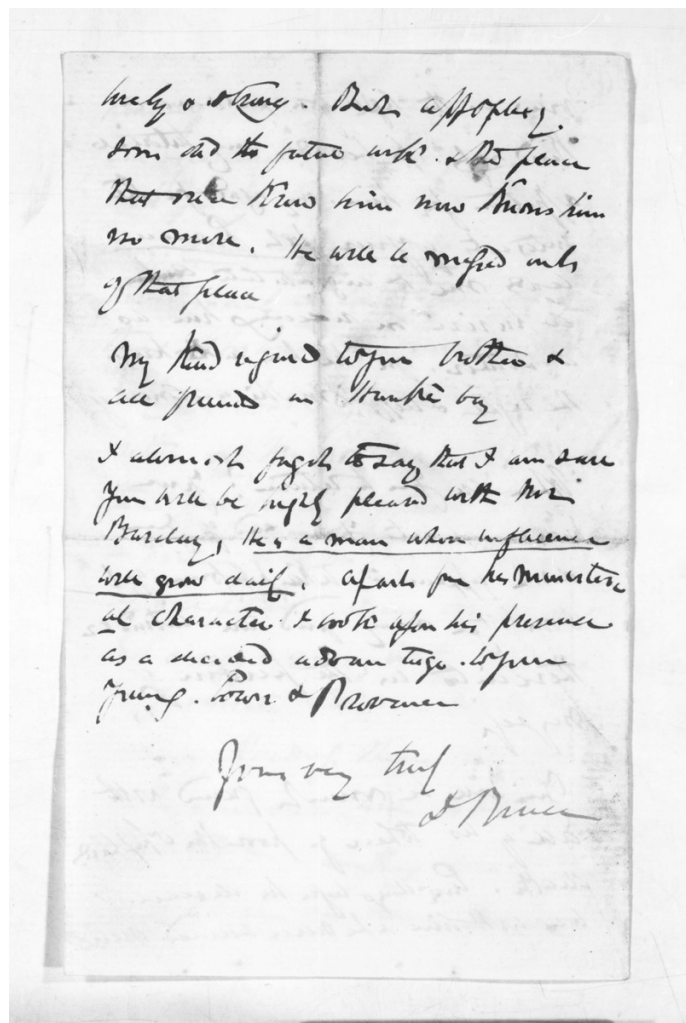 lively & strong. But apoplexy
soon did the fatal work. & the place
that once knew him now knows him
no more. He will be missed
of that place
My kind regards to your brother &
all friends in Hawke's bay
I almost forgot to say that I am sure
you will be highly pleased with Mr
Barclay, He is a man whose influence
will grow daily. Apart from his Minister
al character. I look upon his presence
as a decided advantage to your
young. Town & Province
Yours very truly
D Bruce